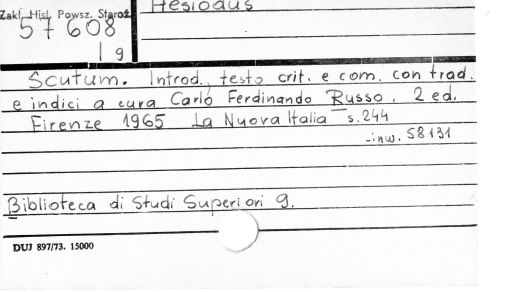 Hesiodus
Zakł. Hist. Powsz. Staroż.
57608
I g
Scutum. Introd., testo crit. e com. con trad.
e indici a cura Carlo Ferdinando Russo. 2 ed.
Firenze 1965 La Nuova Italia s.244
inw. 58131
Biblioteca di Studi Superiori 9.
DUJ 897/73. 15000